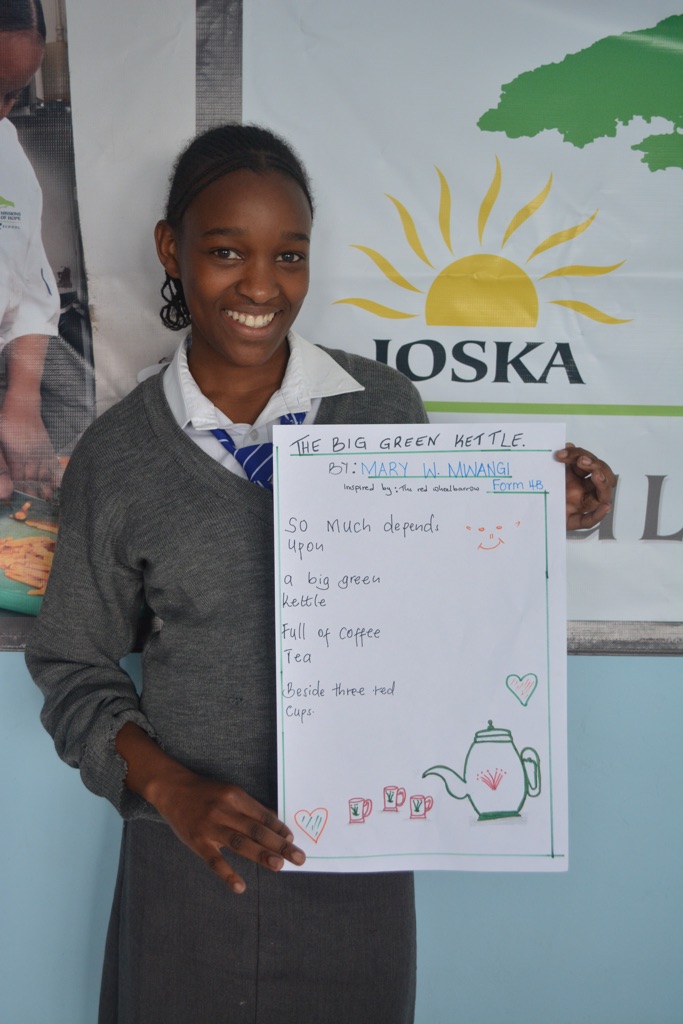 JOSKA
THE BIG GREEN KETTLE.
BY: MARY W. MWANGI
Inspired by: The red wheelbarrow Form 4B
So much depends
upon
a big green
kettle
Full of coffee
Tea
Beside three red
Cups.